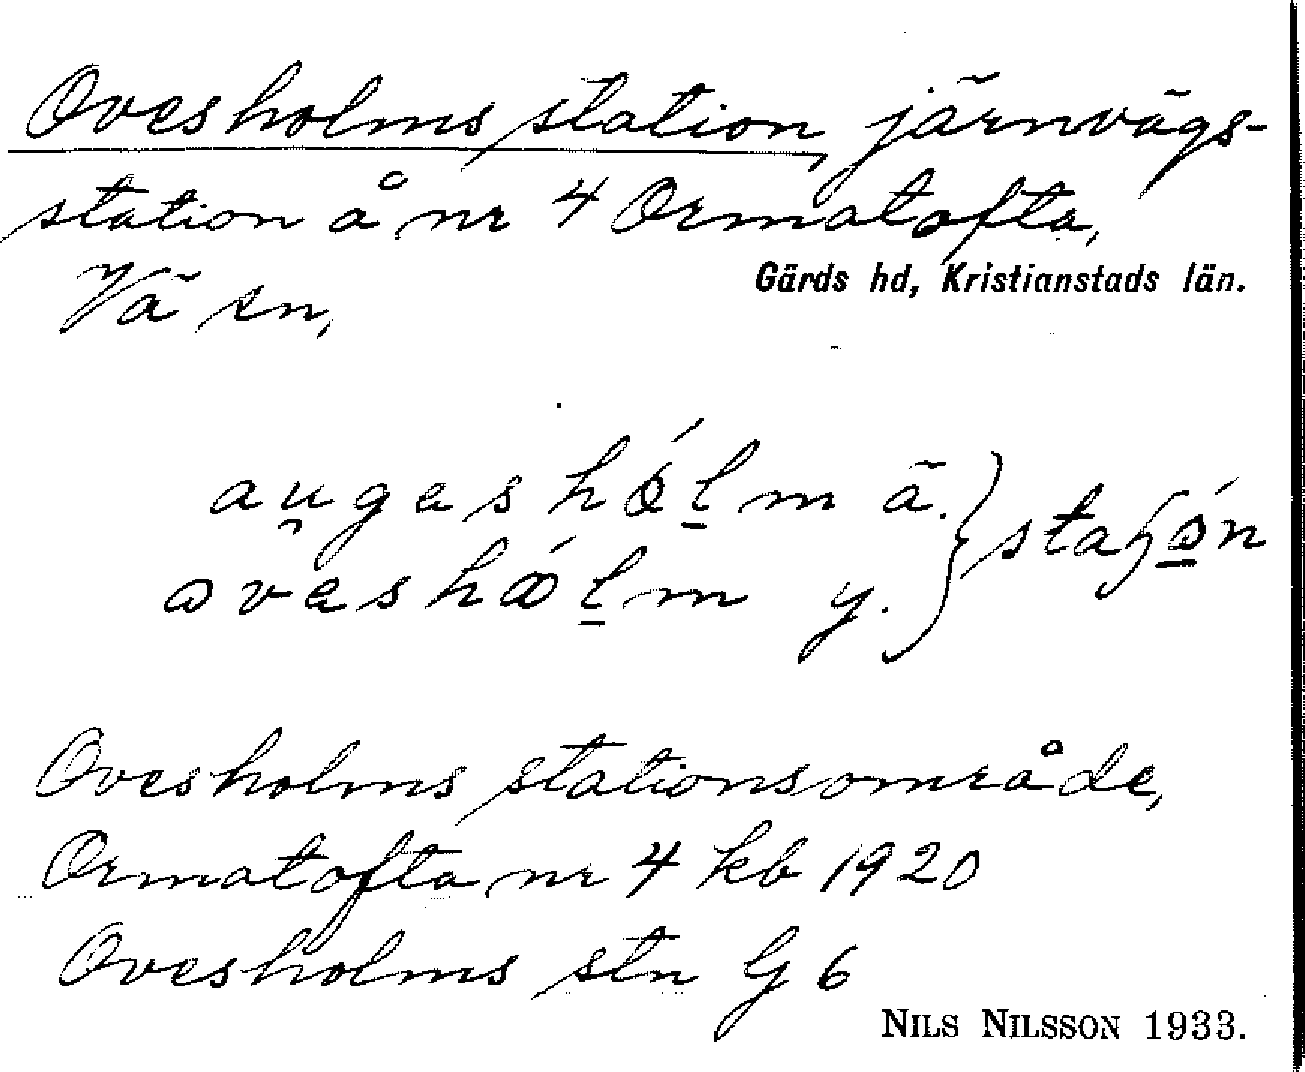 Ovesholms station, järnvägs-
station å nr 4 Ormatofta,
Vä sn,
Gärds hd, Kristianstads län.
au̯gəshǿl̲m ä.
ɷvəshɷ́l̲m y. } staʃǿ̲n
Ovesholms stationsområde,
Ormatofta nr 4 kb 1920
Ovesholms stn G 6
NILS NILSSON 1933.